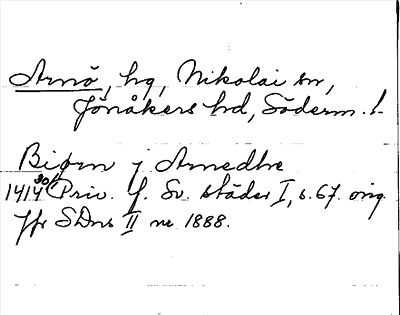 Arnö, hg, Nikolai sn,
Jönåkers hd, Söderm. l.
Biørn j Arnedhre
1414 30/1 Priv. f. Sv. städer I, s. 67. orig.
Jfr SDns II nr 1888.